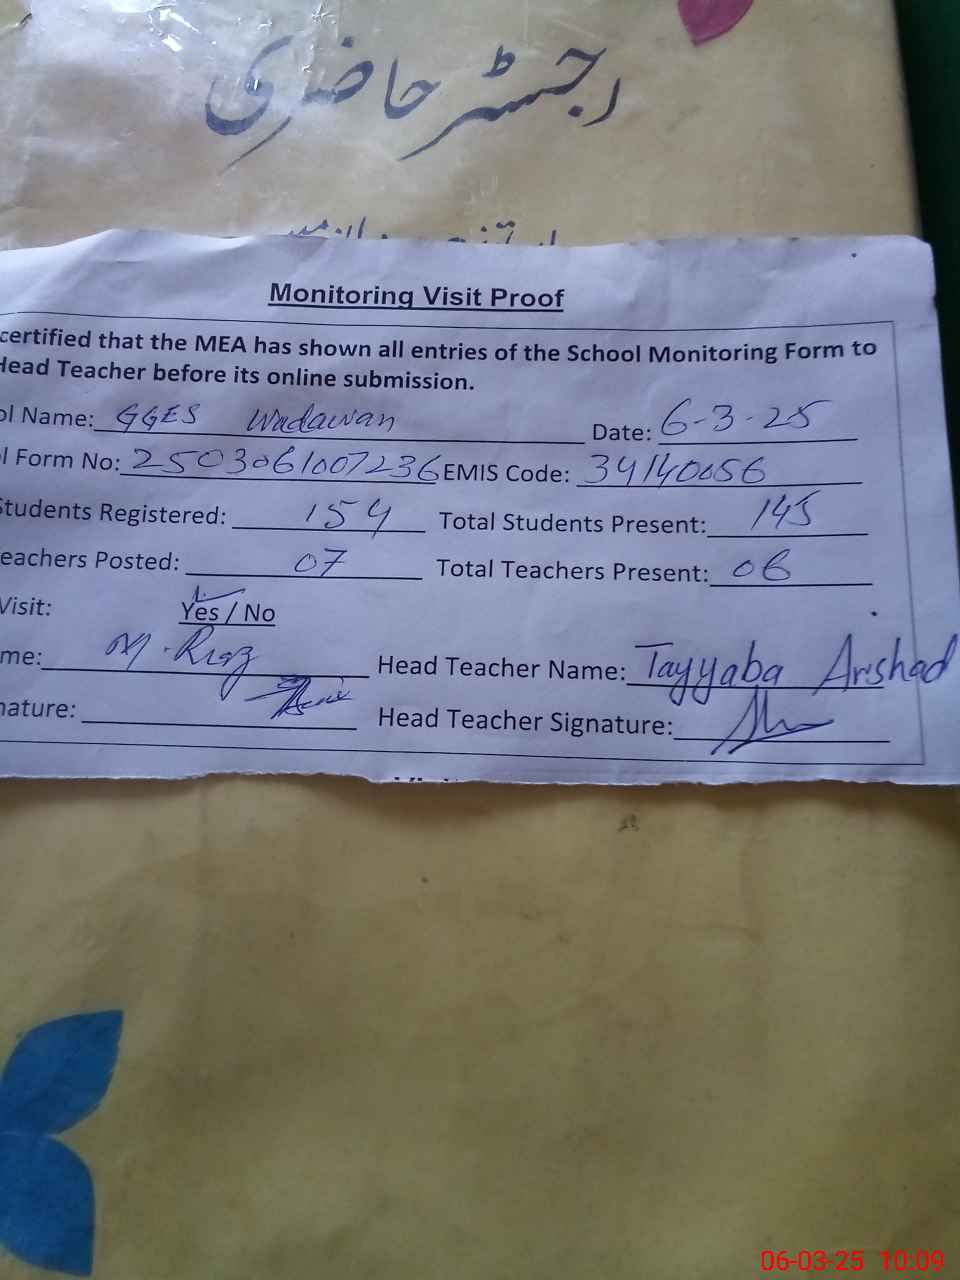 رجسٹر حاضری
Monitoring Visit Proof
certified that the MEA has shown all entries of the School Monitoring Form to
Head Teacher before its online submission.
ol Name: GGES Wadawan Date: 6-3-25
l Form No: 2503061007236 EMIS Code: 34140056
Students Registered: 154 Total Students Present: 145
eachers Posted: 07 Total Teachers Present: 06
Visit: Yes / No
me: M. Riaz Head Teacher Name: Tayyaba Arshad
nature: Head Teacher Signature:
06-03-25 10:09